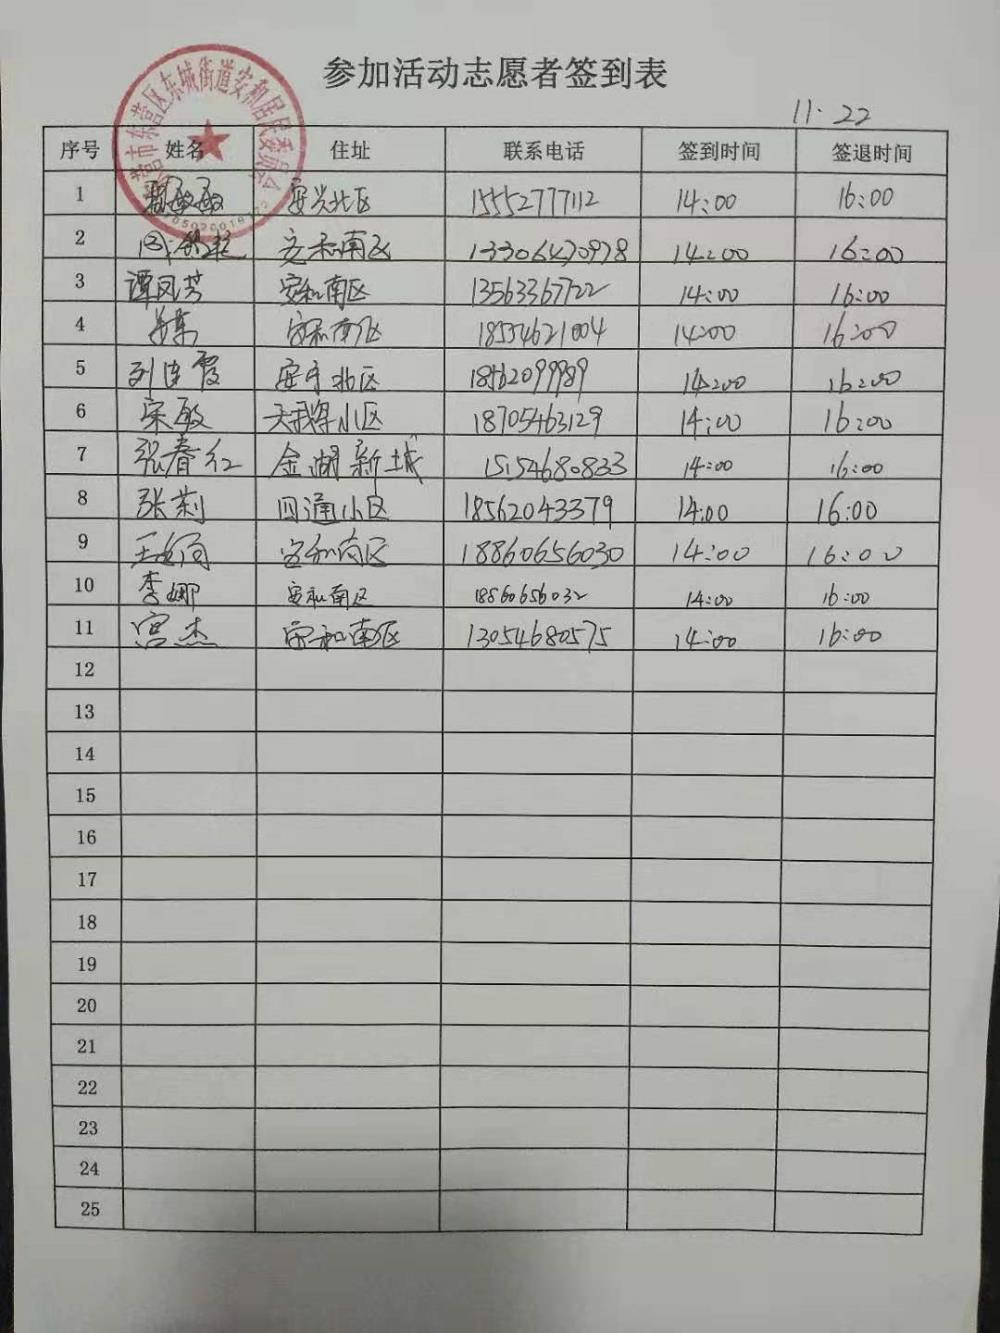 参加活动志愿者签到表
11.22
东营市东营区东城街道安和居民委员会
序号 姓名 住址 联系电话 签到时间 签退时间
1 安兴北区 15552777112 14:00 16:00
2 安和南区 13306470978 14:00 16:00
3 谭凤芳 安和南区 13563367722 14:00 16:00
4 安和南区 18554621004 14:00 16:00
5 刘连霞 安宁北区 18562099989 14:00 16:00
6 宋敏 小区 18705463129 14:00 16:00
7 张春红 金湖新城 15154680833 14:00 16:00
8 张莉 四通小区 18562043379 14:00 16:00
9 安和南区 18860656030 14:00 16:00
10 李娜 安和南区 18860656032 14:00 16:00
11 宫杰 安和南区 13054680575 14:00 16:00
12
13
14
15
16
17
18
19
20
21
22
23
24
25